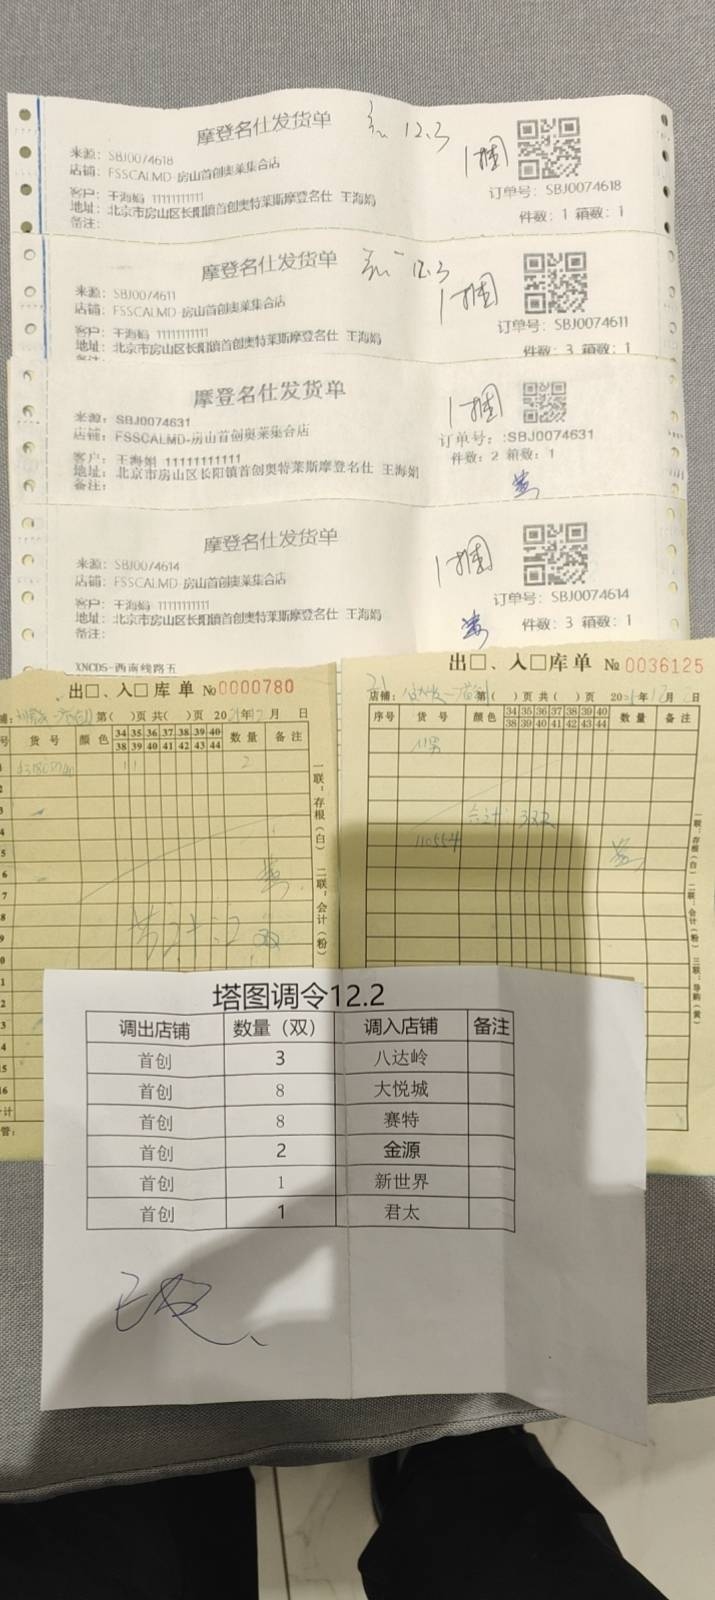 摩登名仕发货单
12.3
1捆
来源：SBJ0074618
店铺：FSSCALMD-房山首创奥莱集合店
订单号：SBJ0074618
客户：王海娟 11111111111
地址：北京市房山区长阳镇首创奥特莱斯摩登名仕 王海娟
件数：1 箱数：1
备注：
摩登名仕发货单
12.3
1捆
来源：SBJ0074611
店铺：FSSCALMD-房山首创奥莱集合店
订单号：SBJ0074611
客户：王海娟 11111111111
地址：北京市房山区长阳镇首创奥特莱斯摩登名仕 王海娟
件数：3 箱数：1
备注：
摩登名仕发货单
1捆
来源：SBJ0074631
店铺：FSSCALMD-房山首创奥莱集合店
订单号：:SBJ0074631
客户：王海娟 11111111111
件数：2 箱数：1
地址：北京市房山区长阳镇首创奥特莱斯摩登名仕 王海娟
备注：
摩登名仕发货单
1捆
来源：SBJ0074614
店铺：FSSCALMD-房山首创奥莱集合店
订单号：SBJ0074614
客户：王海娟 11111111111
地址：北京市房山区长阳镇首创奥特莱斯摩登名仕 王海娟
件数：3 箱数：1
备注：
XNCDS-西南线路五
出□、入□库单 №0000780
铺： 第( )页 共( )页 20 年 月 日
号 货号 颜色 34 35 36 37 38 39 40 数量 备注
38 39 40 41 42 43 44
1 1 1 2
2
3
4
5
6
7
8
9
0
1
2
3
4
15
16
计
管：
2双
一联：存根（白） 二联：会计（粉）
出□、入□库单 №0036125
店铺： 第( )页 共( )页 20 年12月 日
序号 货号 颜色 34 35 36 37 38 39 40 数量 备注
38 39 40 41 42 43 44
合计：3双
110554
一联：存根（白） 二联：会计（粉） 三联：导购（黄）
塔图调令12.2
调出店铺 数量（双） 调入店铺 备注
首创 3 八达岭
首创 8 大悦城
首创 8 赛特
首创 2 金源
首创 1 新世界
首创 1 君太
已发